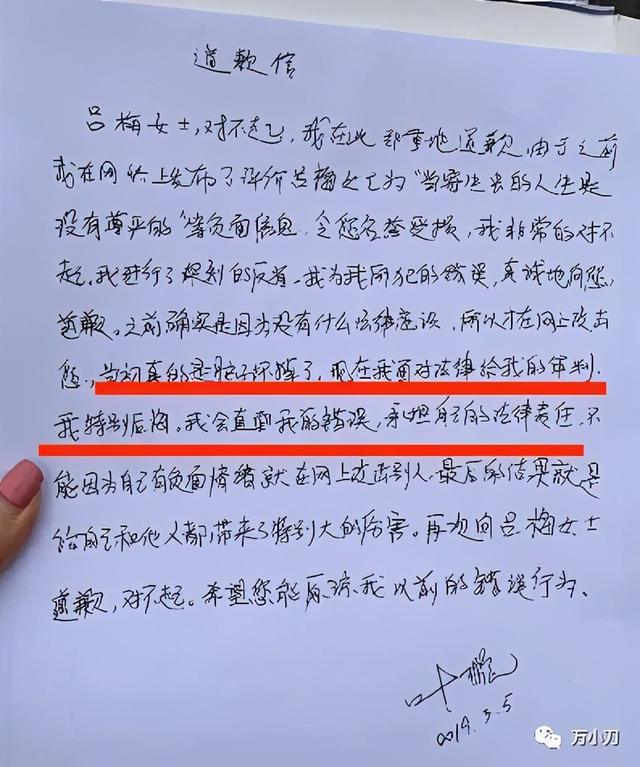 道歉信
吕梅女士,对不起,我在此郑重地道歉,由于之前
我在网络上发布了评价吕梅女士为“当寄生虫的人生是
没有尊严的”等负面信息,令您名誉受损,我非常的对不
起,我进行了深刻的反省,我为我所犯的错误,真诚地向您,
道歉。之前确实是因为没有什么法律意识,所以才在网上攻击
您,当初真的是脑子坏掉了,现在我面对法律给我的审判.
我特别后悔。我会直面我的错误,承担自己的法律责任,不
能因为自己有负面情绪就在网上攻击别人,最后的结果就是
给自己和他人都带来了特别大的伤害。再次向吕梅女士
道歉,对不起。希望您能原谅我以前的错误行为、
叶
2019.5.5
万小刀